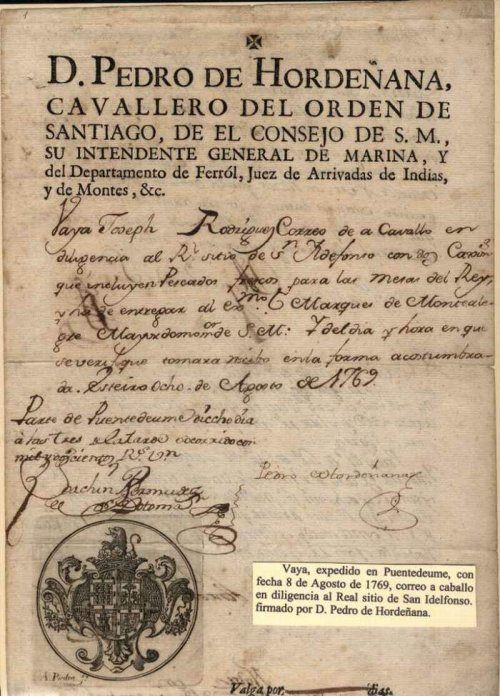 D. PEDRO DE HORDEÑANA,
CAVALLERO DEL ORDEN DE
SANTIAGO, DE EL CONSEJO DE S. M.,
SU INTENDENTE GENERAL DE MARINA, Y
del Departamento de Ferról, Juez de Arrivadas de Indias,
y de Montes, &c.
Vaya Joseph Rodriguez Correo de a Cavallo en
diligencia al Rl. sitio de Sn. Ildefonso con dos
que incluyen Pescados frescos para las mesas del Rey,
y ha de entregar al Marques de Monteale-
gre Mayordomo de S. M: y del dia y hora en que
se verifique tomara recibo en la forma acostumbra-
da. Esteiro Ocho de Agosto de 1769
Parte de Puentedeume dicho dia
à las tres
Pedro de Hordeñana
Vaya, expedido en Puentedeume, con
fecha 8 de Agosto de 1769, correo a caballo
en diligencia al Real sitio de San Idelfonso.
firmado por D. Pedro de Hordeñana.
Valga por dias.